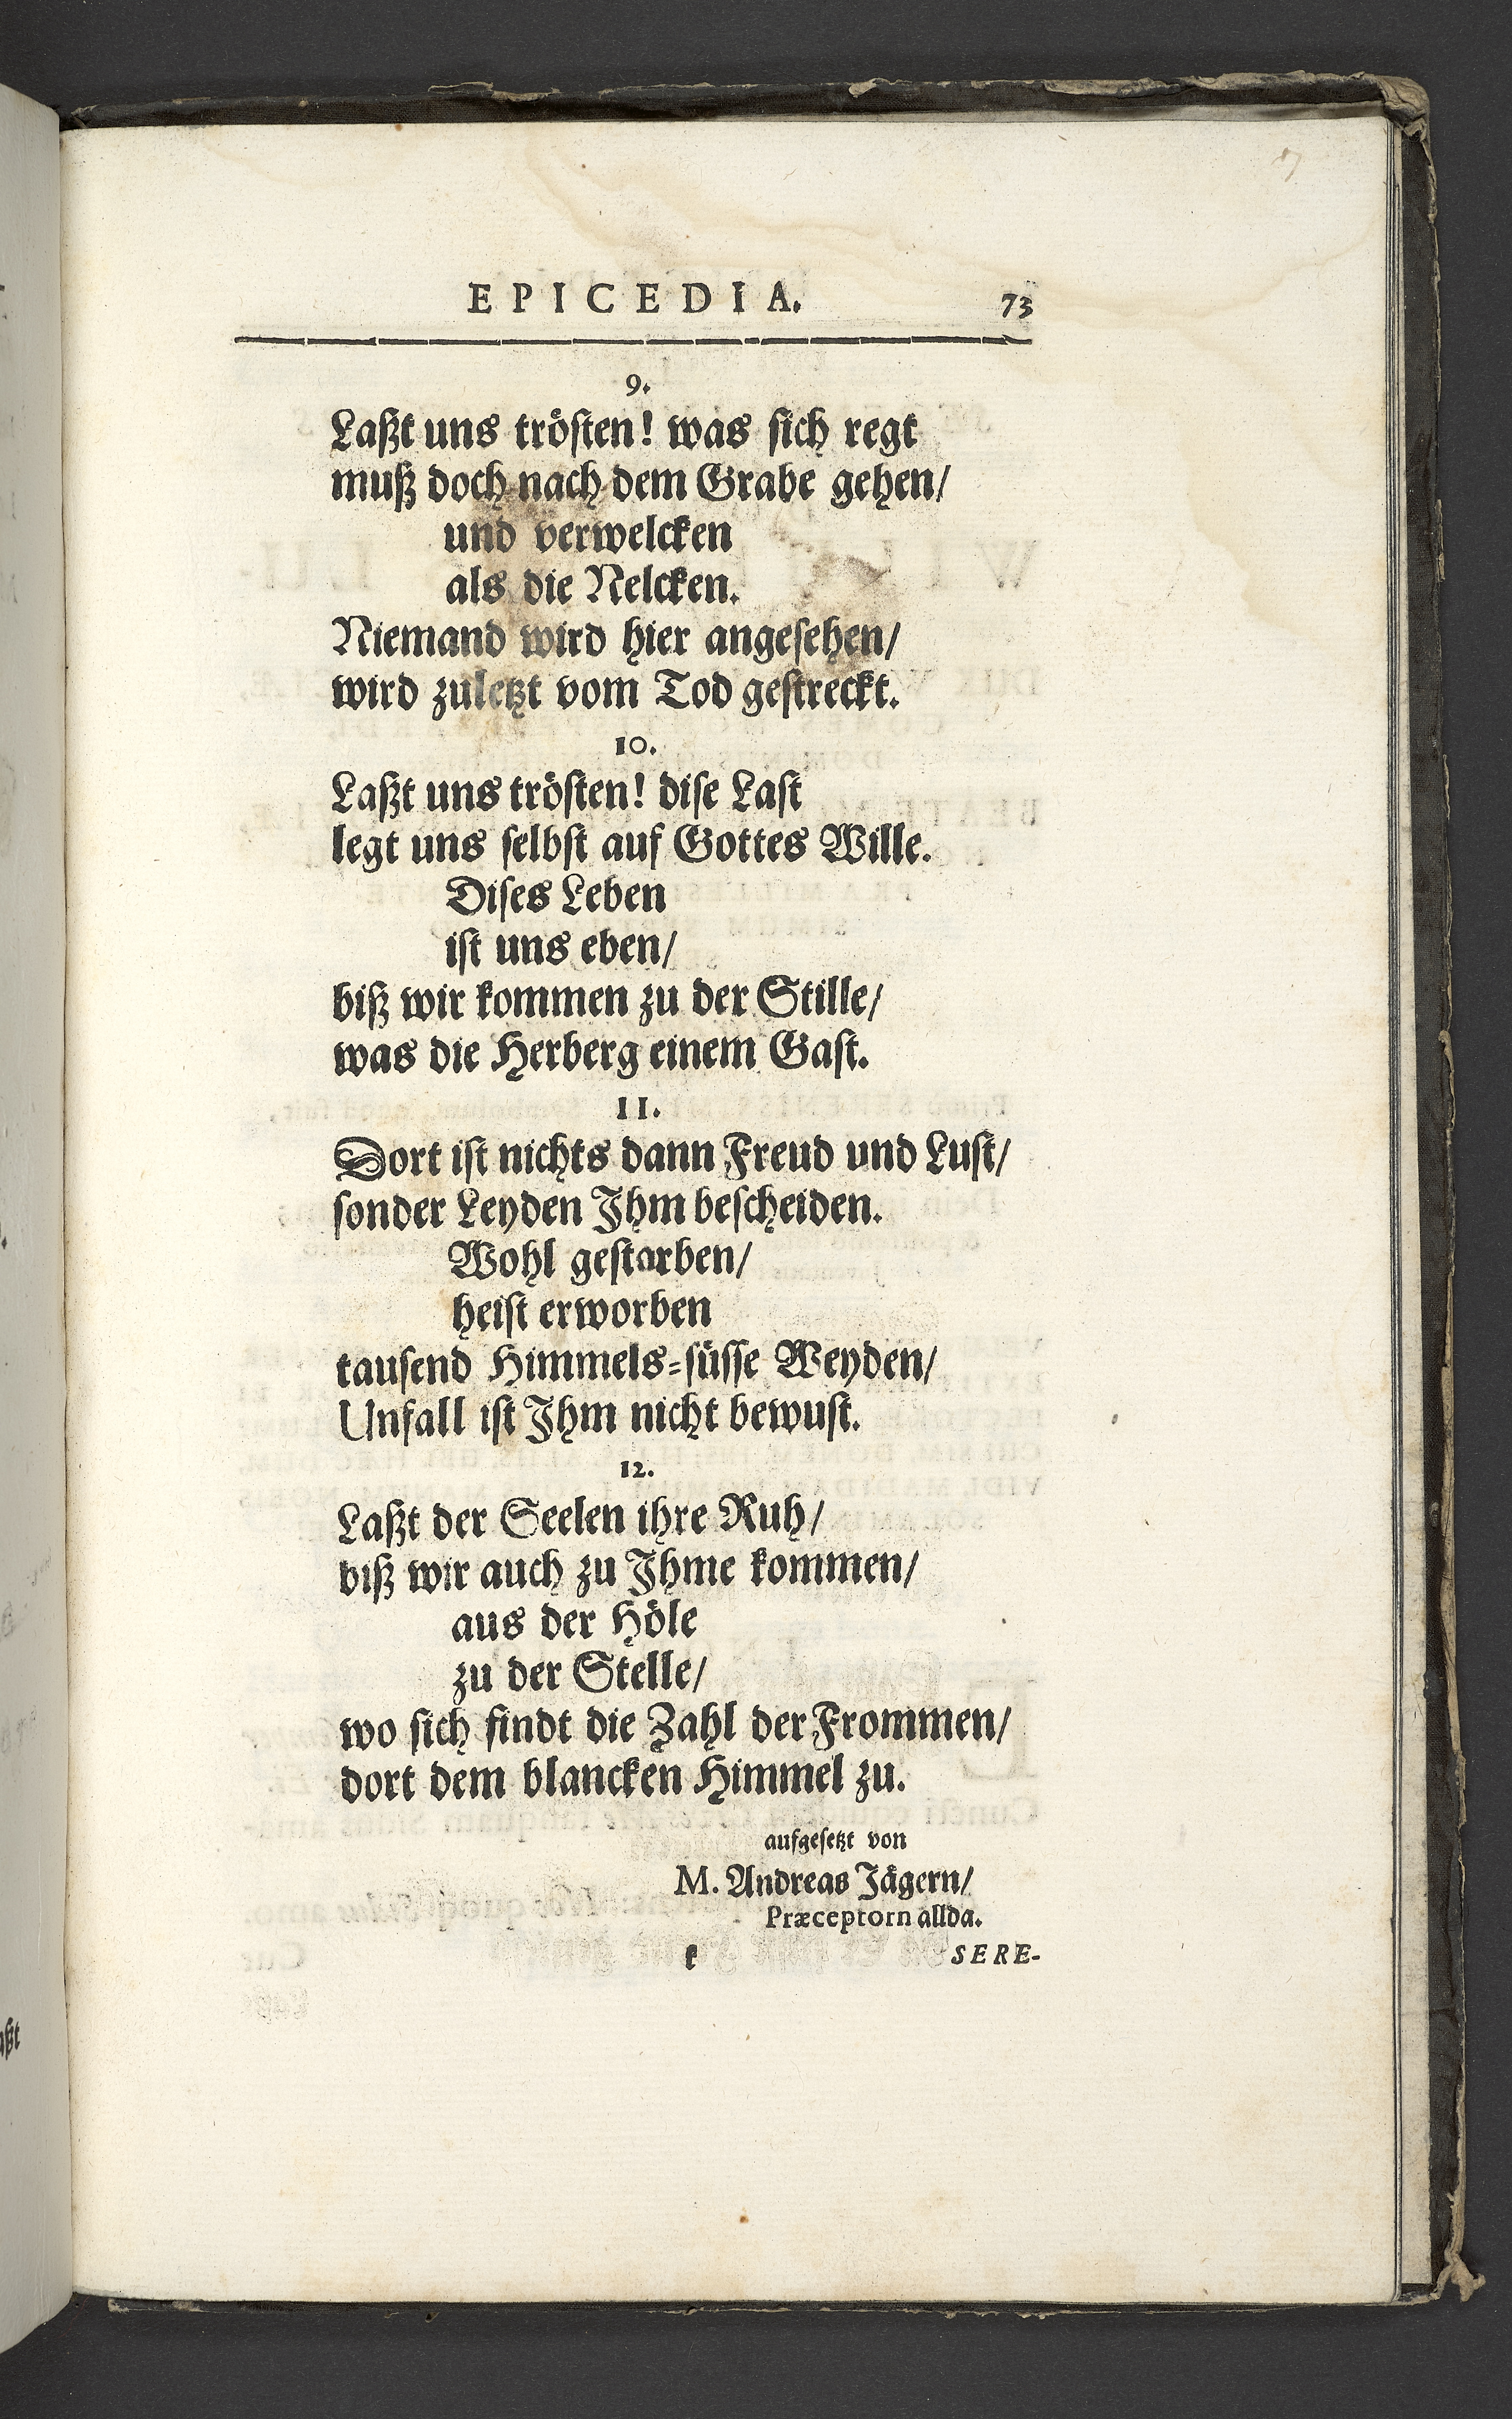 EPICEDIA. 73
9.
Laßt uns tröſten! was ſich regt
muß doch nach dem Grabe gehen/
und verwelcken
als die Nelcken.
Niemand wird hier angeſehen/
wird zuletzt vom Tod geſtreckt.
10.
Laßt uns tröſten! diſe Laſt
legt uns ſelbſt auf Gottes Wille.
Diſes Leben
iſt uns eben/
biß wir kommen zu der Stille/
was die Herberg einem Gaſt.
11.
Dort iſt nichts dann Freud und Luſt/
ſonder Leyden Jhm beſcheiden.
Wohl geſtarben/
heiſt erworben
tauſend Himmels-ſüſſe Weyden/
Unfall iſt Jhm nicht bewuſt.
12.
Laßt der Seelen ihre Ruh/
biß wir auch zu Jhme kommen/
aus der Höle
zu der Stelle/
wo ſich findt die Zahl der Frommen/
dort dem blancken Himmel zu.
aufgeſetzt von
M. Andreas Jägern/
Præceptorn allda.
k SERE-